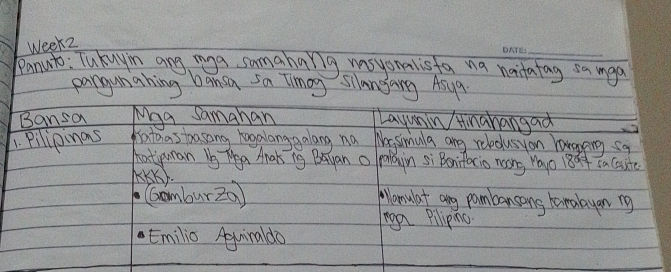 Week2
DATE:
Panuto: Tukuyin ang mga samahang nasyonalista na naitatag sa mga
pangunahing bansa sa Timog Silangang Asya.
Bansa
Mga Samahan
Layunin/Hinahangad
1. Pilipinas
Kataastaasang, kagalanggalang na
katipunan ng Mga Anak ng Bayan o
KKK).
• (GomburZa)
• Emilio Aguinaldo
Nagsimula ang rebolusyon hanggang sa
patayin si Bonifacio noong Mayo 1897 sa Cavite.
• Mamulat ang pambansang kamalayan ng
mga Pilipino.